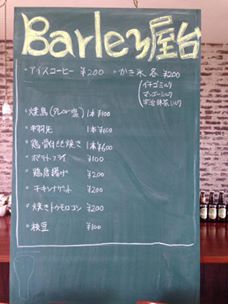 Barley屋台
・アイスコーヒー ¥200 ・かき氷 各¥200
(イチゴミルク
マンゴーミルク
宇治抹茶ミルク
・焼鳥(タレor塩) 1本¥100
・手羽先 1本¥100
・鶏骨付もも焼き 1本¥600
・ポテトフライ ¥100
・鶏唐揚げ ¥200
・チキンナゲット ¥200
・焼きトウモロコシ ¥200
・枝豆 ¥100